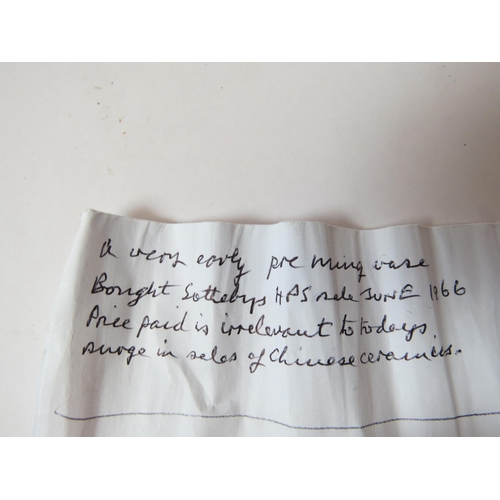 A very early pre ming vase
Bought Sothebys HPS sale JUNE 1966
Price paid is irrelevant to todays
surge in sales of Chinese ceramics.